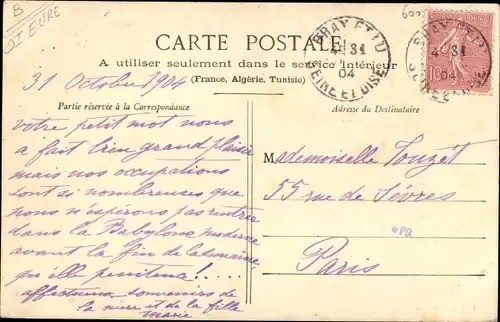 B
St EURE
CARTE POSTALE
A utiliser seulement dans le service intérieur
(France, Algérie, Tunisie)
BRAY ET LU
31
04
SEINE ET OISE
31 Octobre 1904
Partie réservée à la Correspondance
Adresse du Destinataire
votre petit mot nous
a fait bien grand plaisir
mais nos occupations
sont si nombreuses que
nous n'espérons pas rentrer
dans la Babylone moderne
avant la fin de la semaine
qu'elle penitence !....
affectueux souvenirs de
la mère et de la fille
Marie
Mademoiselle Touzet
55 rue de Sèvres
Paris